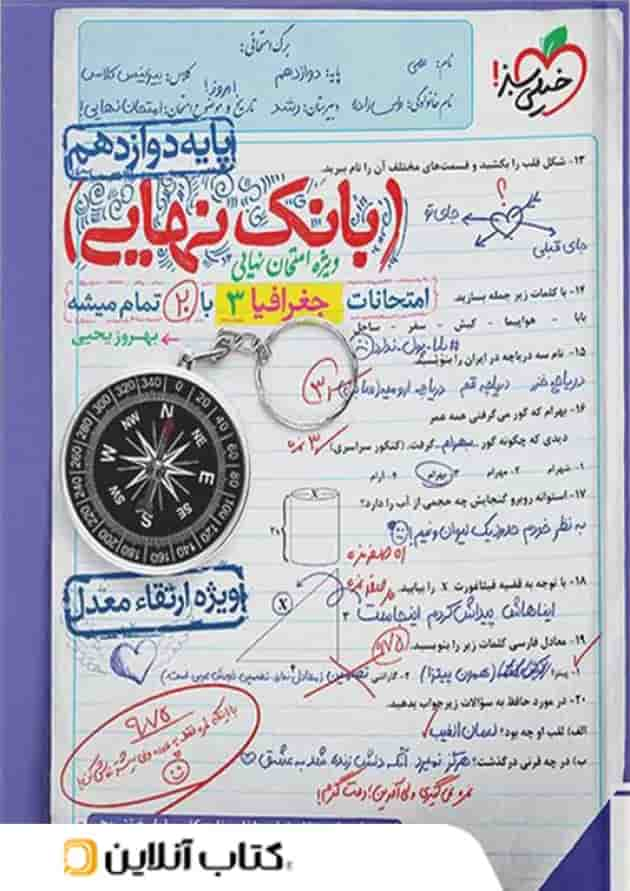 برگ امتحانی:
خیلی سبز!
نام:
پایه: دوازدهم
کلاس: بیزینس کلاس
امروز!
نام خانوادگی:
دبیرستان: رشد
تاریخ و موضوع امتحان: امتحان نهایی!
پایه دوازدهم
۱۳- شکل قلب را بکشید و قسمت‌های مختلف آن را نام ببرید.
؟
جای تو
جای قبلی
(بانک نهایی)
ویژه امتحان نهایی
امتحانات جغرافیا ۳ با ۲۰ تمام میشه
بهروز یحیی
۱۴- با کلمات زیر جمله بسازید.
بابا - هواپیما - کیش - سفر - ساحل
# بابا_پول_ندارد
۱۵- نام سه دریاچه در ایران را بنویسید.
دریاچه خزر دریاچه قم دریاچه ارومیه
۱۶- بهرام که گور می‌گرفتی همه عمر
دیدی که چگونه گور بهرام گرفت. (کنکور سراسری)
۱. شهرام ۲. مهرام ۳. بهرام ۴. آرام
۱۷- استوانه روبرو گنجایش چه حجمی از آب را دارد؟
به نظر خودم حدود یک لیوان و نیم!
X
۲۸
۱۸- با توجه به قضیه فیثاغورث X را بیابید.
ایناهاش پیداش کردم اینجاست
X
۳
ویژه ارتقاء معدل
۱۹- معادل فارسی کلمات زیر را بنویسید.
۹/۷۵
۱- پیتزا (همون پیتزا) ۲- گارانتی
۲۰- در مورد حافظ به سؤالات زیر جواب بدهید.
الف) لقب او چه بود؟ لسان الغیب
ب) در چه قرنی درگذشت؟ هرگز نمیرد آنکه دلش زنده شد به عشق
۹/۷۵
نمره نمی‌گیری ولی آفرین! دمت گرم!
کتاب آنلاین